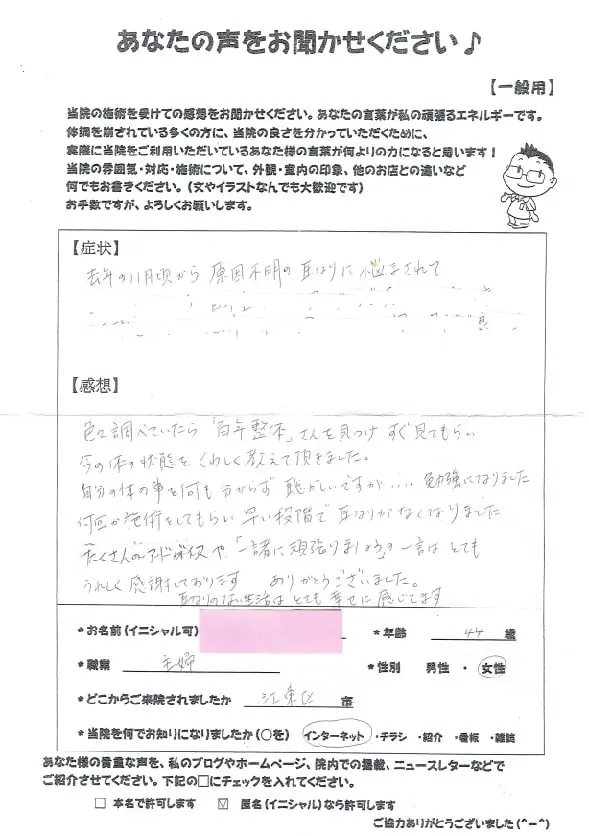 あなたの声をお聞かせください♪
【一般用】
当院の施術を受けての感想をお聞かせください。あなたの言葉が私の頑張るエネルギーです。
体調を崩されている多くの方に、当院の良さを分かっていただくために、
実際に当院をご利用いただいているあなた様の言葉が何よりの力になると思います！
当院の雰囲気・対応・施術について、外観・室内の印象、他のお店との違いなど
何でもお書きください。（文やイラストなんでも大歓迎です）
お手数ですが、よろしくお願いします。
【症状】
去年の11月頃から 原因不明の耳なりに悩まされて
【感想】
色々調べていたら「百年整体」さんを見つけ すぐ見てもらい
今の体の状態を くわしく教えて頂きました。
自分の体の事を何も分からず 恥かしいですが‥‥ 勉強になりました
何回か施術をしてもらい 早い段階で 耳なりがなくなりました
たくさんのアドバイスや、「一諸に頑張りましょう」の一言は とても
うれしく 感謝しております ありがとうございました。
耳なりのない生活は とても 幸せに 感じてます
*お名前（イニシャル可） *年齢 44 歳
*職業 主婦 *性別 男性 ・ 女性
*どこからご来院されましたか 江東区 市
*当院を何でお知りになりましたか（○を） インターネット ・チラシ ・紹介 ・看板 ・雑誌
あなた様の貴重な声を、私のブログやホームページ、院内での掲載、ニュースレターなどで
ご紹介させてください。下記の□にチェックを入れてください。
□ 本名で許可します ☑ 匿名（イニシャル）なら許可します
ご協力ありがとうございました（^－^）